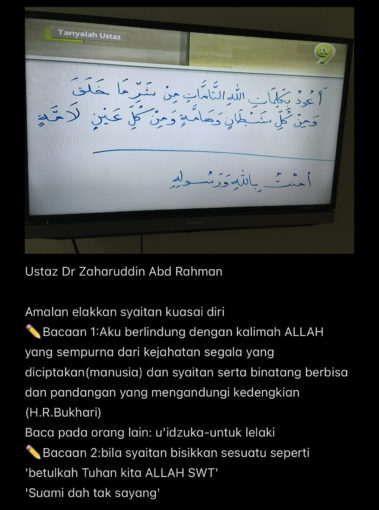 Tanyalah Ustaz
9
أَعُوذُ بِكَلِمَاتِ اللهِ التَّامَّاتِ مِنْ شَرِّ مَا خَلَقَ
وَمِنْ كُلِّ شَيْطَانٍ وَهَامَّةٍ وَمِنْ كُلِّ عَيْنٍ لَامَّةٍ
امَنْتُ بِاللهِ وَرَسُولِهِ
Ustaz Dr Zaharuddin Abd Rahman
Amalan elakkan syaitan kuasai diri
✏️Bacaan 1:Aku berlindung dengan kalimah ALLAH
yang sempurna dari kejahatan segala yang
diciptakan(manusia) dan syaitan serta binatang berbisa
dan pandangan yang mengandungi kedengkian
(H.R.Bukhari)
Baca pada orang lain: u'idzuka-untuk lelaki
✏️Bacaan 2:bila syaitan bisikkan sesuatu seperti
'betulkah Tuhan kita ALLAH SWT'
'Suami dah tak sayang'